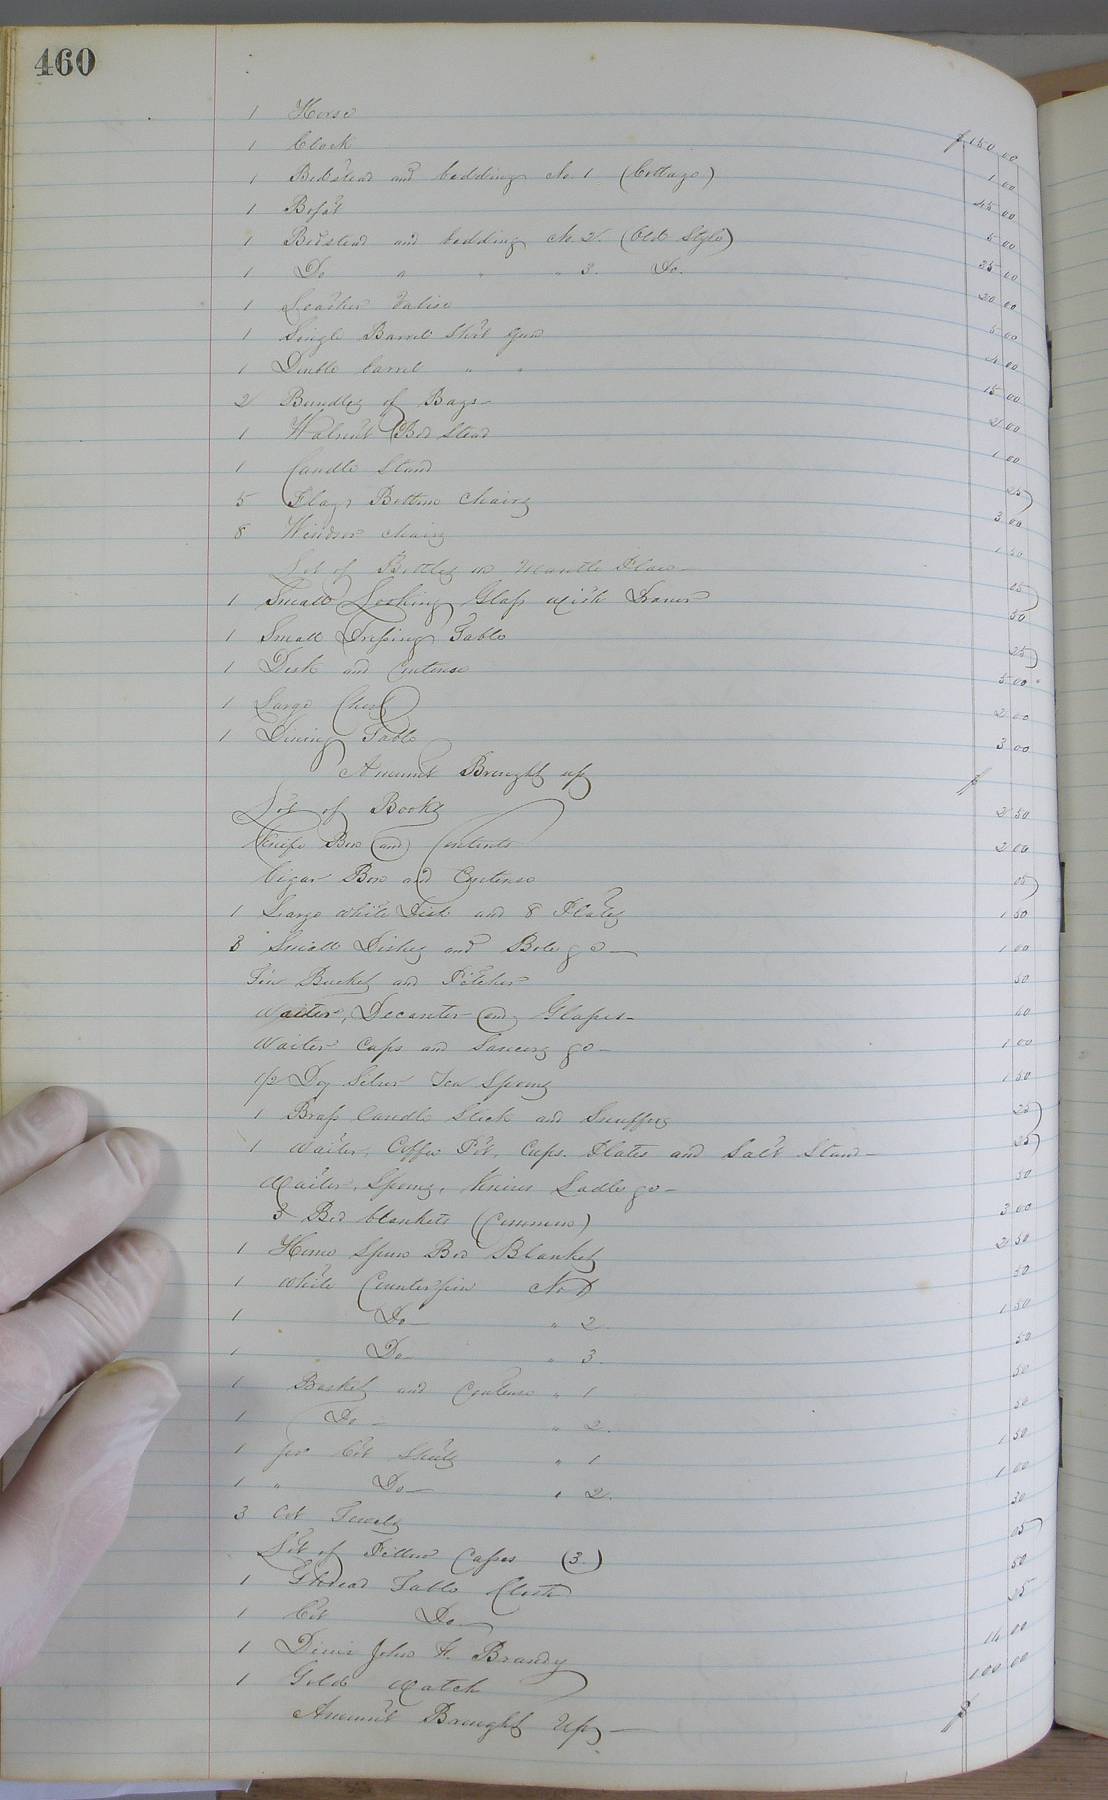 460
1 Horse $150 00
1 Clock 1 00
1 Bedstead and bedding No 1 (Cottage) 45 00
1 Bofat 5 00
1 Bedstead and bedding No 2. (Old Style) 35 00
1 Do " " " 3. Do. 20 00
1 Leather Valise 5 00
1 Single Barrel Shot gun 4 00
1 Double barrel " " 15 00
2 Bundles of Bags 2 00
1 Walnut Bed Stead 1 00
1 Candle Stand 25
5 Flags Bottom chairs 3 00
8 Windsor chairs 1 50
Lot of Bottles on Mantle Place 05
1 Small Looking Glass with Drawer 50
1 Small Dressing Table 25
1 Desk and Contense 5 00
1 Large Chest 2 00
1 Dining Table 3 00
Amount Brought up $
Lot of Books 2 50
Knife Box and Contents 2 00
Cigar Box and Contense 05
1 Large white Dish and 8 Plates 1 50
3 Small Dishes and Bole &c 1 00
Tin Bucket and Pitcher 50
Waiter, Decanter and Glasses 40
Waiter Cups and Saucers &c 1 00
1/2 Dz Silver Tea Spoons 1 50
1 Brass Candle Stick and Snuffers 25
1 Waiter, Coffee Pot, Cups. Plates and Salt Stand 25
Waiter, Spoons, Knives Ladle &c 50
3 Bed blankets (Common) 3 00
1 Home Spun Bed Blanket 2 50
1 White Counterpin No 1 50
1 Do " 2. 1 50
1 Do " 3. 50
1 Basket and Contense " 1 50
1 Do " 2. 50
1 pr Cot Sheets " 1 1 50
1 " Do " 2. 1 00
3 Cot Towels 30
Lot of Pillow Casses (3) 05
1 Thread Table Cloth 50
1 Cot Do 25
1 Demi John & Brandy 14 00
1 Gold Watch 100 00
Amount Brought Up $